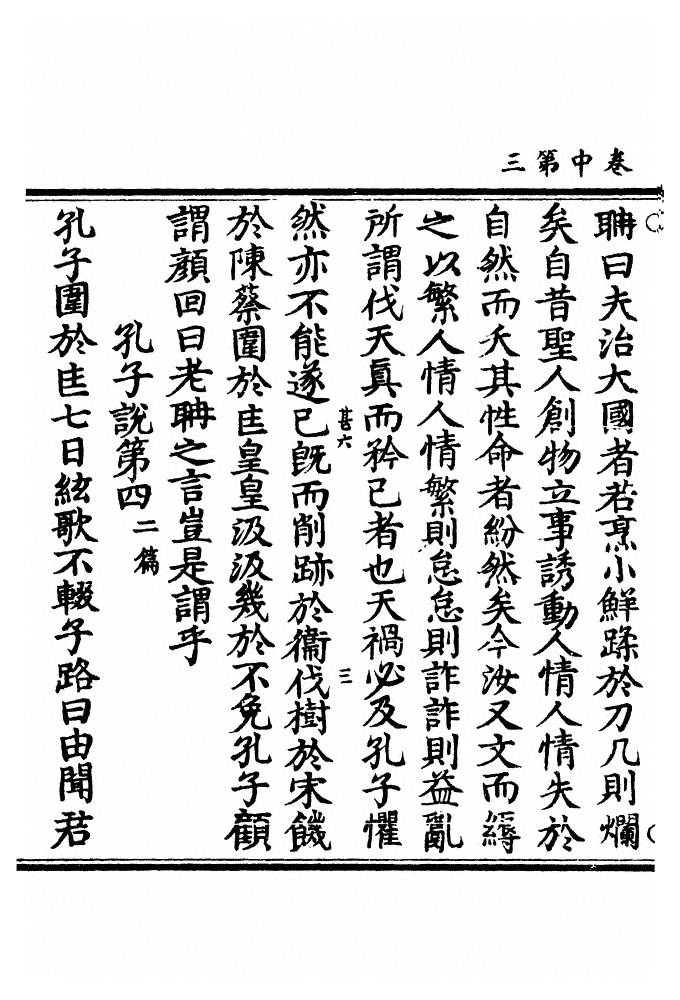 卷中第三
聃曰夫治大國者若烹小鮮蹂於刀几則爛
矣自昔聖人創物立事誘動人情人情失於
自然而夭其性命者紛然矣今汝又文而縟
之以繁人情人情繁則怠怠則詐詐則益亂
所謂伐天真而矜已者也天禍必及孔子懼
然亦不能遂已既而削跡於衞伐樹於宋饑
甚六
三
於陳蔡圍於匡皇皇汲汲幾於不免孔子顧
謂顏回曰老聃之言豈是謂乎
孔子說第四二篇
孔子圍於匡七日絃歌不輟子路曰由聞君